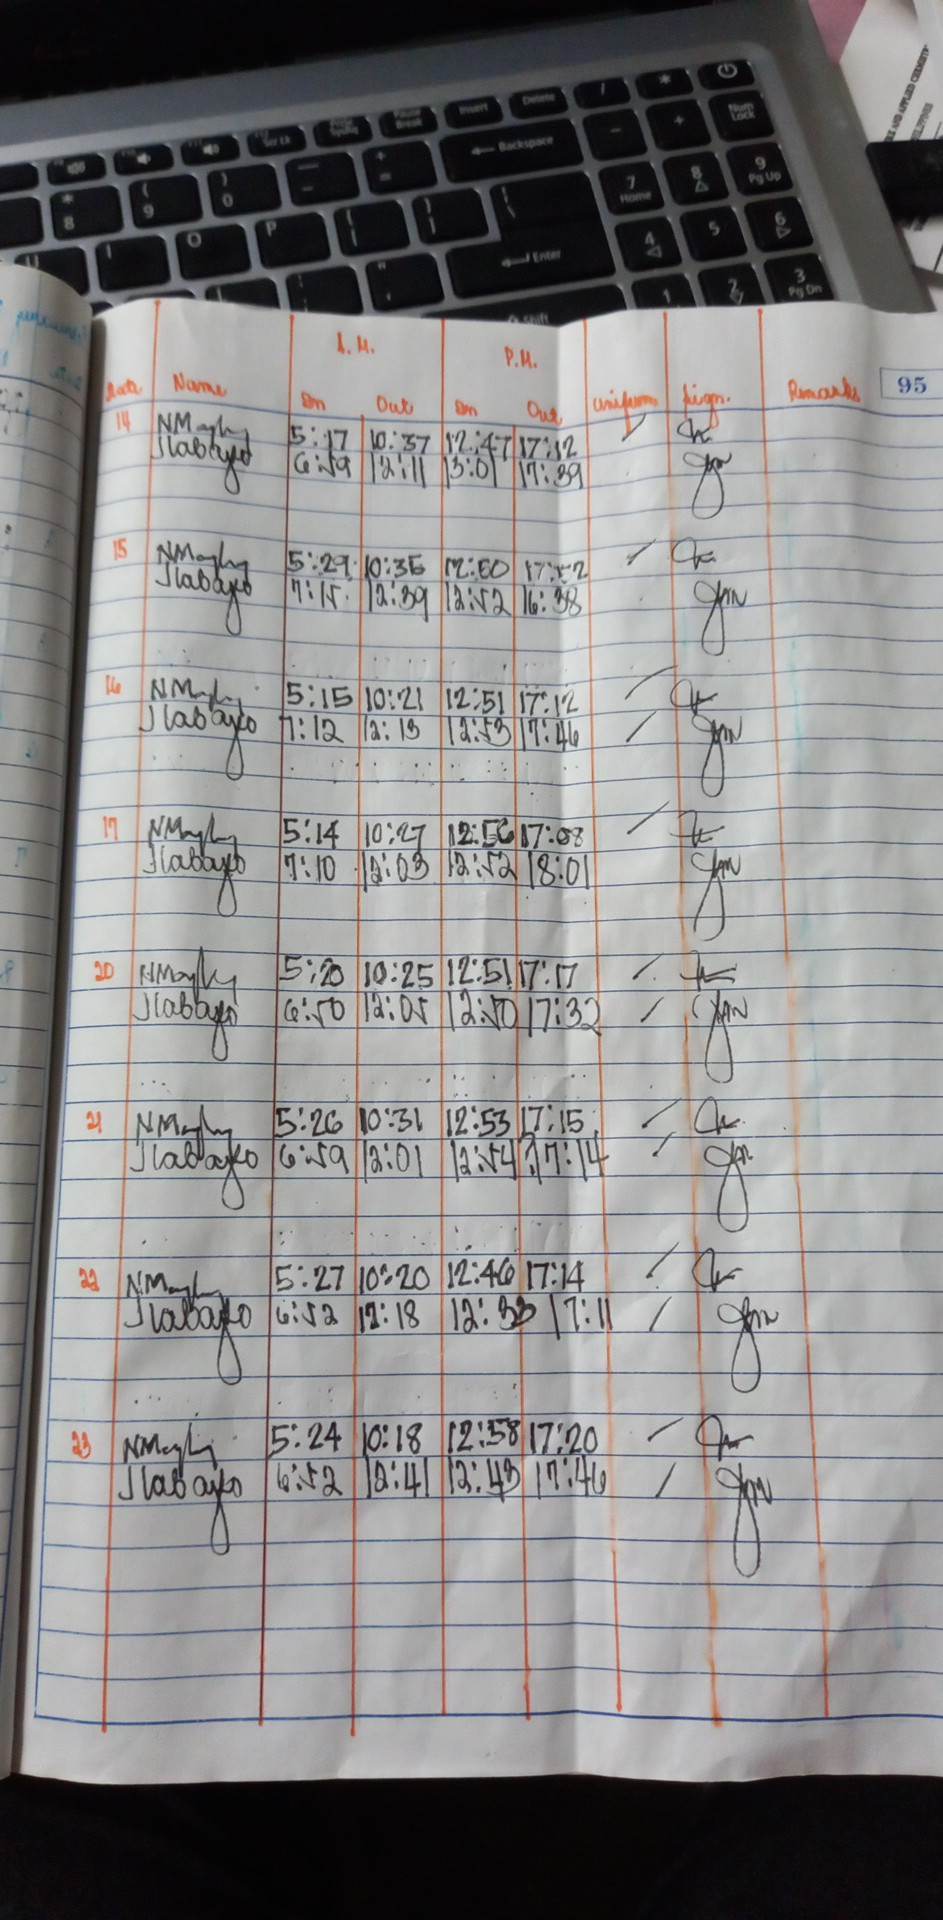 Insert
Delete
/
*
Num Lock
Backspace
-
+
7 Home
8
9 Pg Up
8
9
0
O
P
4
5
6
Enter
1
2
3 Pg Dn
Shift
95
A.M. P.M.
Date Name In Out In Out Uniform Sign. Remarks
14 5:17 10:37 12:47 17:12
Jlabayo 6:59 12:11 13:01 17:39
15 5:29 10:35 12:50 17:52
Jlabayo 7:15 12:39 12:52 16:38
16 5:15 10:21 12:51 17:12
Jlabayo 7:12 12:13 12:53 17:46
17 5:14 10:27 12:56 17:08
Jlabayo 7:10 12:03 12:52 18:01
20 5:20 10:25 12:51 17:17
Jlabayo 6:50 12:05 12:50 17:32
21 5:26 10:31 12:53 17:15
Jlabayo 6:59 12:01 12:54 17:14
22 5:27 10:20 12:46 17:14
Jlabayo 6:52 12:18 12:33 17:11
23 5:24 10:18 12:58 17:20
Jlabayo 6:52 12:41 12:43 17:46